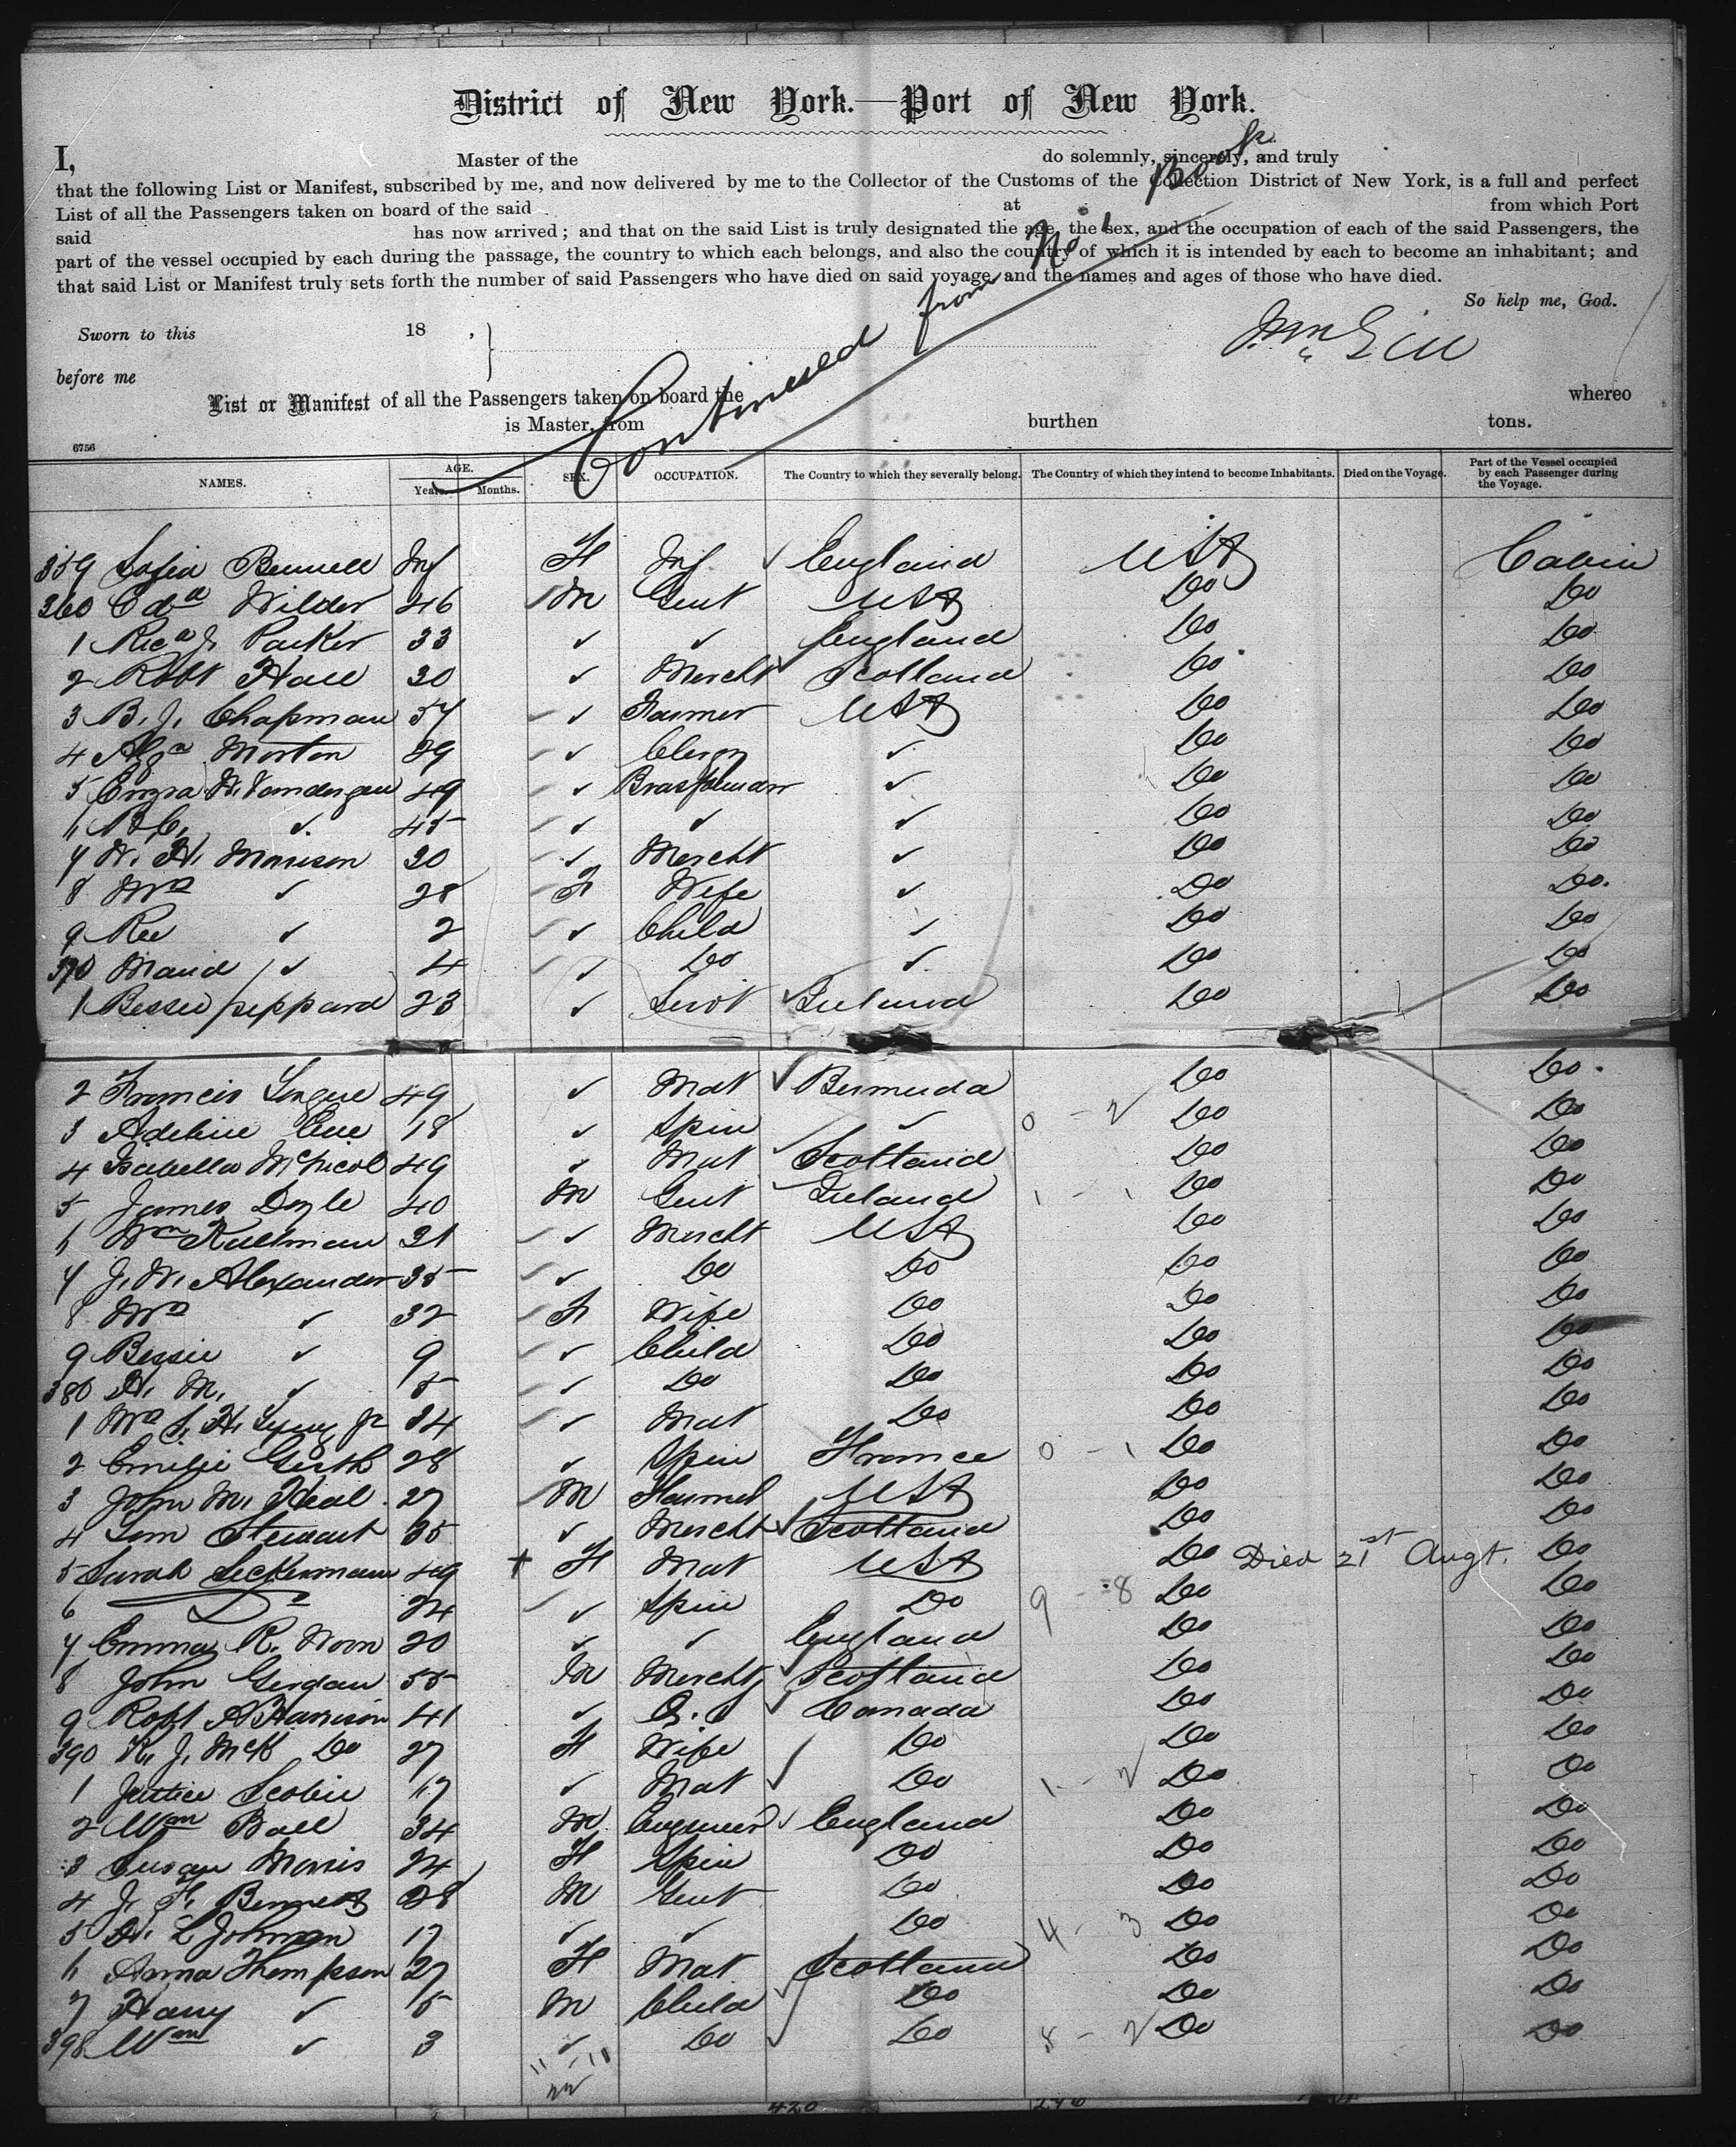 District of New York.—Port of New York.
I, Master of the do solemnly, sincerely, and truly
that the following List or Manifest, subscribed by me, and now delivered by me to the Collector of the Customs of the Collection District of New York, is a full and perfect
List of all the Passengers taken on board of the said at from which Port
said has now arrived; and that on the said List is truly designated the age, the sex, and the occupation of each of the said Passengers, the
part of the vessel occupied by each during the passage, the country to which each belongs, and also the country of which it is intended by each to become an inhabitant; and
that said List or Manifest truly sets forth the number of said Passengers who have died on said voyage, and the names and ages of those who have died.
So help me, God.
Continued from No 1 Book
Sworn to this 18 ,
before me
List or Manifest of all the Passengers taken on board the whereo
is Master, from burthen tons.
6756
NAMES. AGE. Years. Months. SEX. OCCUPATION. The Country to which they severally belong. The Country of which they intend to become Inhabitants. Died on the Voyage. Part of the Vessel occupied by each Passenger during the Voyage.
359 Inf F Inf England USA Cabin
360 Edd Wilder 46 M Gent USA Do Do
1 Parker 33 ✓ ✓ England Do Do
2 Robt Hall 30 ✓ Mercht Scotland Do Do
3 B. J. Chapman 57 ✓ Farmer USA Do Do
4 Morton 39 ✓ Clergy ✓ Do Do
5 49 ✓ ✓ Do Do
6 ✓ 45 ✓ ✓ ✓ Do Do
7 W. H. Morrison 30 ✓ Mercht ✓ Do Do
8 Mrs ✓ 28 F Wife ✓ Do Do
9 ✓ 2 ✓ Child ✓ Do Do
370 Maud ✓ 4 ✓ Do ✓ Do Do
1 Bessie Peppard 23 ✓ Servt Ireland Do Do
2 Francis 49 ✓ Mat Bermuda Do Do
3 Adeline 18 ✓ Spin ✓ 0 - 2 Do Do
4 Isabella McNicol 49 ✓ Mat Scotland Do Do
5 James Doyle 40 M Gent Ireland 1 - 1 Do Do
6 Wm Kullman 31 ✓ Mercht USA Do Do
7 J. W. Alexander 35 ✓ Do Do Do Do
8 Mrs ✓ 32 F Wife Do Do Do
9 Bessie ✓ 9 ✓ Child Do Do Do
380 H. M. ✓ 5 ✓ Do Do Do Do
1 Mrs Jr 34 ✓ Mat Do Do Do
2 Emilie 28 ✓ Spin France 0 - 1 Do Do
3 John M. 27 M USA Do Do
4 Stewart 35 ✓ Mercht Scotland Do Do
5 Sarah Seckermann 49 + F Mat USA Do Died 21st Augt. Do
6 Do 24 ✓ Spin Do 9 - 8 Do Do
7 Emma R. 20 ✓ ✓ England Do Do
8 John 55 M Mercht Scotland Do Do
9 Robt A Harrison 41 ✓ Canada Do Do
390 K. J. McK Do 27 F Wife Do Do Do
1 Scobie 17 ✓ Mat Do 1 - 2 Do Do
2 Wm Ball 34 M Engineer England Do Do
3 Susan Morris 24 F Spin Do Do Do
4 J. F. Bennett 28 M Gent Do Do Do
5 Johnson 17 ✓ ✓ Do 4 - 3 Do Do
6 Anna Thompson 27 F Mat Scotland Do Do
7 Harry ✓ 5 M Child Do Do Do
398 Wm ✓ 3 ✓ Do Do 8 - 2 Do Do
11 - 11
22